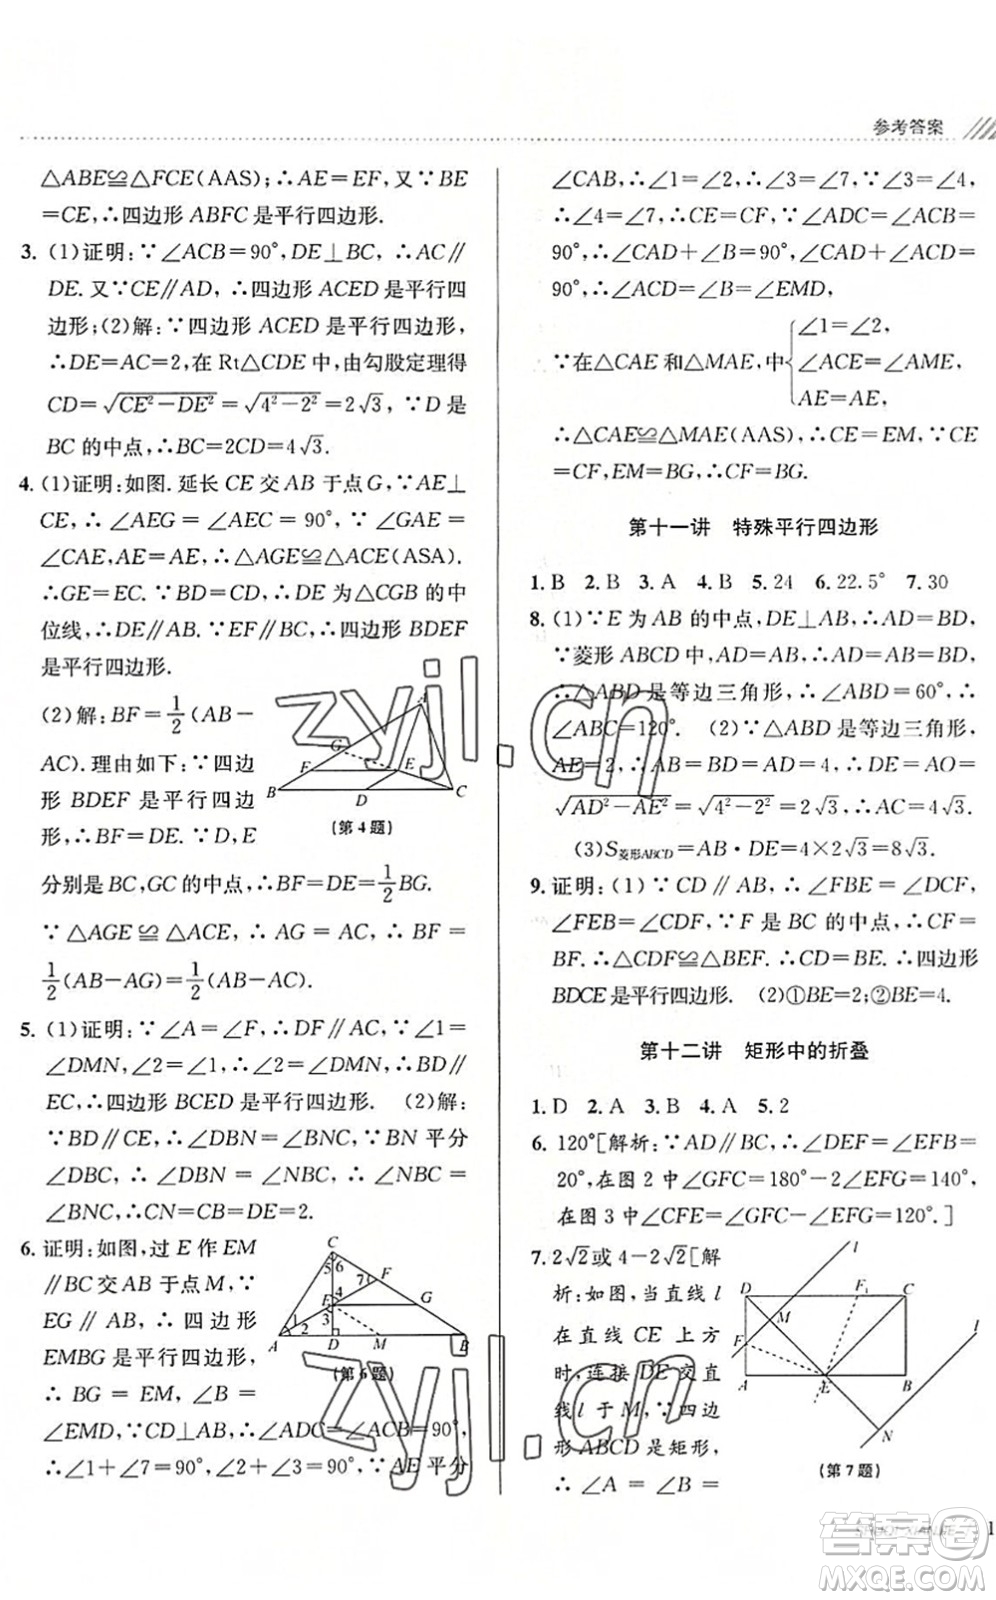 参考答案
△ABE≌△FCE(AAS);∴AE=EF,又∵BE
=CE,∴四边形 ABFC 是平行四边形.
3. (1)证明:∵∠ACB=90°,DE⊥BC,∴AC∥
DE.又∵CE∥AD,∴四边形 ACED 是平行四
边形;(2)解:∵四边形 ACED 是平行四边形,
∴DE=AC=2,在 Rt△CDE 中,由勾股定理得
CD=√(CE²-DE²)=√(4²-2²)=2√3,∵D 是
BC 的中点,∴BC=2CD=4√3.
4. (1)证明:如图.延长 CE 交 AB 于点 G,∵AE⊥
CE,∴∠AEG=∠AEC=90°,∠GAE=
∠CAE,AE=AE,∴△AGE≌△ACE(ASA).
∴GE=EC.∵BD=CD,∴DE 为△CGB 的中
位线,∴DE∥AB.∵EF∥BC,∴四边形 BDEF
是平行四边形.
(2)解:BF=1/2(AB-
AC).理由如下:∵四边
形 BDEF 是平行四边
形,∴BF=DE.∵D、E
A
G
F
E
B
D
C
(第 4 题)
分别是 BC,GC 的中点,∴BF=DE=1/2BG.
∵△AGE≌△ACE,∴AG=AC,∴BF=
1/2(AB-AG)=1/2(AB-AC).
5. (1)证明:∵∠A=∠F,∴DF∥AC,∵∠1
=∠DMN,∠2=∠1,∴∠2=∠DMN,∴BD∥
EC,∴四边形 BCED 是平行四边形. (2)解:
∵BD∥CE,∴∠DBN=∠BNC,∵BN 平分
∠DBC,∴∠DBN=∠NBC,∴∠NBC=
∠BNC,∴CN=CB=DE=2.
6. 证明:如图,过 E 作 EM
∥BC 交 AB 于点 M,∵
EG∥AB,∴四边形
EMBG 是平行四边形,
∴BG=EM,∠B=
∠EMD,∵CD⊥AB,∴∠ADC=∠ACB=90°,
∴∠1+∠7=90°,∠2+∠3=90°,∵AE 平分
C
5
6
7
F
E
4
G
3
1
2
A
D
M
B
(第 6 题)
∠CAB,∴∠1=∠2,∴∠3=∠7,∵∠3=∠4,
∴∠4=∠7,∴CE=CF,∵∠ADC=∠ACB=
90°,∴∠CAD+∠ACD=90°,∠CAD+∠B=
90°,∴∠ACD=∠B=∠EMD,
∵在△CAE 和△MAE,中
∠1=∠2,
∠ACE=∠AME,
AE=AE,
∴△CAE≌△MAE(AAS),∴CE=EM,∵CE
=CF,EM=BG,∴CF=BG.
第十一讲 特殊平行四边形
1. B 2. B 3. A 4. B 5. 24 6. 22.5° 7. 30
8. (1)∵E 为 AB 的中点,DE⊥AB,∴AD=BD,
∵菱形 ABCD 中,AD=AB,∴AD=BD=AB,
∴△ABD 是等边三角形,∴∠DAB=60°,∴
∠ABC=120°. (2)∵△ABD 是等边三角形,
AE=2,∴AD=AB=4,∴DE=AO=
√(AD²-AE²)=√(4²-2²)=2√3,∴AC=4√3.
(3)S菱形ABCD=AB·DE=4×2√3=8√3.
9. 证明:(1)∵CD∥AB,∴∠FBE=∠DCF,
∠FEB=∠CDF,∵F 是 BC 的中点,∴CF=
BF.∴△CDF≌△BEF.∴CD=BE.∴四边形
BDCE 是平行四边形. (2)①BE=2;②BE=4.
第十二讲 矩形中的折叠
1. D 2. A 3. B 4. A 5. 2
6. 120°[解析:∵AD∥BC,∴∠DEF=∠EFB=
20°,在图 2 中∠GFC=180°-2∠EFG=140°,
在图 3 中∠CFE=∠GFC-∠EFG=120°.]
7. 2√2或 4-2√2[解
析:如图,当直线 l
在直线 CE 上方
时,连接 DE 交直
线 l 于 M,∵四边
形 ABCD 是矩形,
∴∠A=∠B=
l
D
F₁
C
M
F
l
A
E
B
N
(第 7 题)
zyjl.cn
zyjl.cn
答案圈
MXQE.COM
1